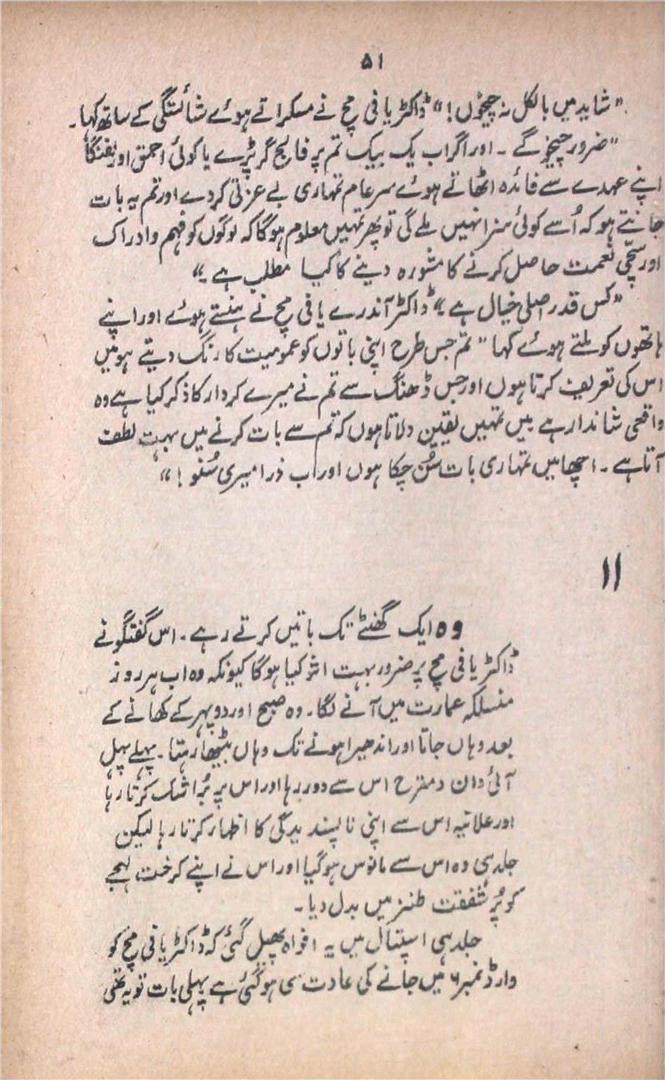 ۵۱
"شاید میں بالکل نہ چیخوں!" ڈاکٹر یافی مچ نے مسکراتے ہوئے شائستگی کے ساتھ کہا۔
"ضرور چیخو گے۔ اور اگر اب یک بیک تم پر فالج گر پڑے یا کوئی احمق اور لفنگا
اپنے عہدے سے فائدہ اٹھاتے ہوئے سر عام تمہاری بے عزتی کر دے اور تم یہ بات
جانتے ہو کہ اُسے کوئی سزا نہیں ملے گی تو پھر تمہیں معلوم ہو گا کہ لوگوں کو فہم و ادراک
اور سچی نعمت حاصل کرنے کا مشورہ دینے کا کیا مطلب ہے۔"
"کس قدر اصلی خیال ہے۔" ڈاکٹر آندرے یافی مچ نے ہنستے ہوئے اور اپنے
ہاتھوں کو ملتے ہوئے کہا "تم جس طرح اپنی باتوں کو عمومیت کا رنگ دیتے ہو میں
اس کی تعریف کرتا ہوں اور جس ڈھنگ سے تم نے میرے کردار کا ذکر کیا ہے وہ
واقعی شاندار ہے میں تمہیں یقین دلاتا ہوں کہ تم سے بات کرنے میں بہت لطف
آتا ہے۔ اچھا میں تمہاری بات سُن چکا ہوں اور اب ذرا میری سُنو!"
۱۱
وہ ایک گھنٹے تک باتیں کرتے رہے۔ اس گفتگو نے
ڈاکٹر یافی مچ پر ضرور بہت اثر کیا ہو گا کیونکہ وہ اب ہر روز
منسلکہ عمارت میں آنے لگا۔ وہ صبح اور دوپہر کے کھانے کے
بعد وہاں جاتا اور اندھیرا ہونے تک وہاں بیٹھا رہتا۔ پہلے پہل
آئی دان دمترح اس سے دور رہا اور اس پر بُرا شک کرتا رہا
اور علانیہ اس سے اپنی ناپسندیدگی کا اظہار کرتا رہا لیکن
جلد ہی وہ اس سے مانوس ہو گیا اور اس نے اپنے کرخت لہجے
کو پُر شفقت طنز میں بدل دیا۔
جلد ہی اسپتال میں یہ افواہ پھیل گئی کہ ڈاکٹر یافی مچ کو
وارڈ نمبر ۶ میں جانے کی عادت سی ہو گئی ہے پہلی بات تو یہ تھی